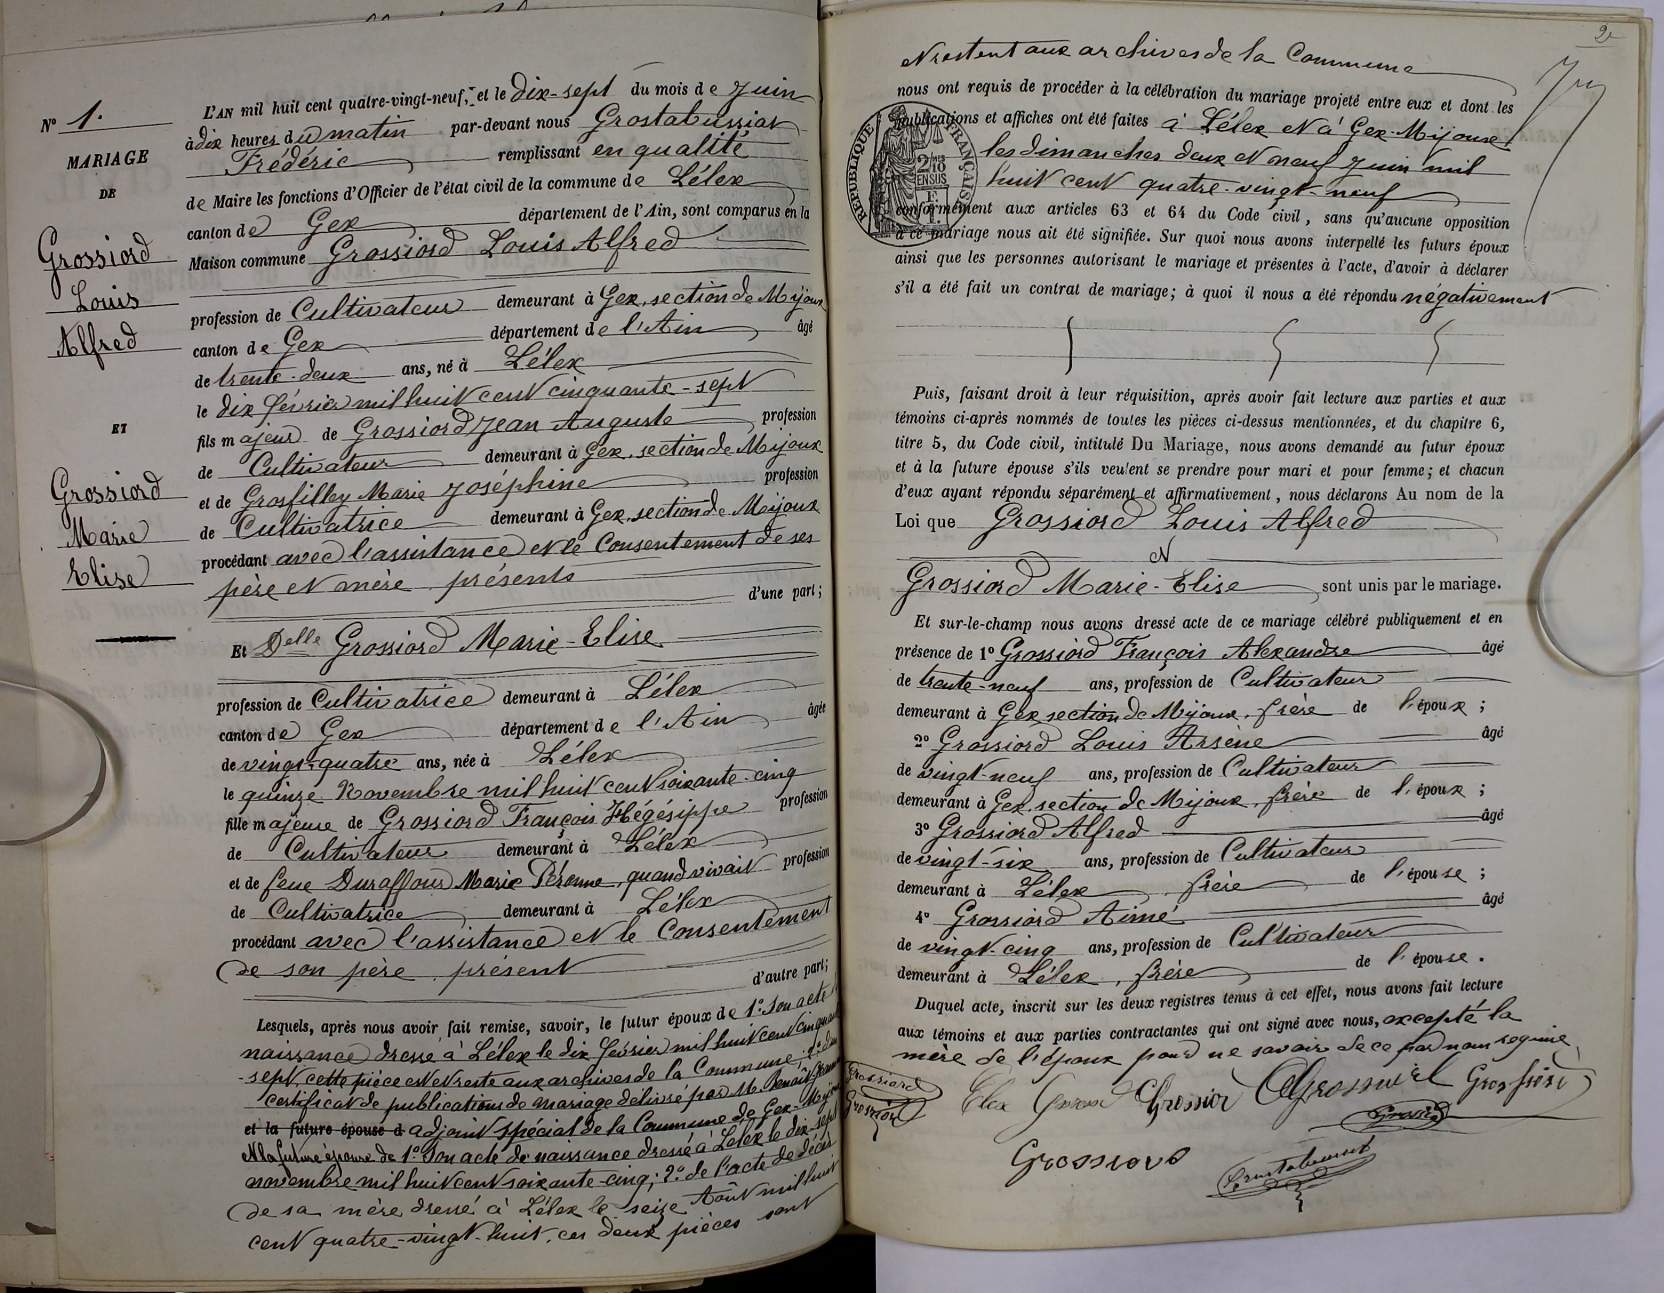 N° 1.
MARIAGE
DE
Grossiord
Louis
Alfred
ET
Grossiord
Marie
Elise
L'AN mil huit cent quatre-vingt-neuf, et le dix-sept du mois de Juin
à dix heures du matin par-devant nous Grostabussiat
Frédéric remplissant en qualité
de Maire les fonctions d'Officier de l'état civil de la commune de Lélex
canton de Gex département de l'Ain, sont comparus en la
Maison commune Grossiord Louis Alfred
profession de Cultivateur demeurant à Gex, section de Mijoux
canton de Gex département de l'Ain âgé
de trente-deux ans, né à Lélex
le dix février mil huit cent cinquante-sept
fils majeur de Grossiord Jean Auguste profession
de Cultivateur demeurant à Gex, section de Mijoux
et de Grosfilley Marie Joséphine profession
de Cultivatrice demeurant à Gex, section de Mijoux
procédant avec l'assistance et le consentement de ses
père et mère présents d'une part;
Et Delle Grossiord Marie-Elise
profession de Cultivatrice demeurant à Lélex
canton de Gex département de l'Ain âgée
de vingt-quatre ans, née à Lélex
le quinze Novembre mil huit cent soixante-cinq
fille majeure de Grossiord François Hégésippe profession
de Cultivateur demeurant à Lélex
et de feue Duraffour Marie Péronne, quand vivait profession
de Cultivatrice demeurant à Lélex
procédant avec l'assistance et le Consentement
de son père, présent d'autre part;
Lesquels, après nous avoir fait remise, savoir, le futur époux de 1° Son acte
naissance dressé à Lélex le dix février mil huit cent cinquante
-sept, cette pièce est et reste aux archives de la Commune; 2° du
certificat de publications de mariage délivré par M. Benoît
et la future épouse d adjoint spécial de la Commune de Gex-Mijoux
et la future épouse de 1° Son acte de naissance dressé à Lélex le dix-sept
novembre mil huit cent soixante-cinq; 2° de l'acte de décès
de sa mère dressé à Lélex le seize Août mil huit
cent quatre-vingt-huit, ces deux pièces sont
2
et restent aux archives de la Commune
nous ont requis de procéder à la célébration du mariage projeté entre eux et dont les
publications et affiches ont été faites à Lélex et à Gex-Mijoux
les dimanches deux et neuf Juin mil
huit cent quatre-vingt-neuf
RÉPUBLIQUE FRANÇAISE
2/10 EN SUS
conformément aux articles 63 et 64 du Code civil, sans qu'aucune opposition
à ce mariage nous ait été signifiée. Sur quoi nous avons interpellé les futurs époux
ainsi que les personnes autorisant le mariage et présentes à l'acte, d'avoir à déclarer
s'il a été fait un contrat de mariage; à quoi il nous a été répondu négativement
Puis, faisant droit à leur réquisition, après avoir fait lecture aux parties et aux
témoins ci-après nommés de toutes les pièces ci-dessus mentionnées, et du chapitre 6,
titre 5, du Code civil, intitulé Du Mariage, nous avons demandé au futur époux
et à la future épouse s'ils veulent se prendre pour mari et pour femme; et chacun
d'eux ayant répondu séparément et affirmativement, nous déclarons Au nom de la
Loi que Grossiord Louis Alfred
et
Grossiord Marie-Elise sont unis par le mariage.
Et sur-le-champ nous avons dressé acte de ce mariage célébré publiquement et en
présence de 1° Grossiord François Alexandre âgé
de trente-neuf ans, profession de Cultivateur
demeurant à Gex section de Mijoux, frère de l'époux;
2° Grossiord Louis Arsène âgé
de vingt-neuf ans, profession de Cultivateur
demeurant à Gex, section de Mijoux, frère de l'époux;
3° Grossiord Alfred âgé
de vingt-six ans, profession de Cultivateur
demeurant à Lélex, frère de l'épouse;
4° Grossiord Aimé âgé
de vingt-cinq ans, profession de Cultivateur
demeurant à Lélex, frère de l'épouse.
Duquel acte, inscrit sur les deux registres tenus à cet effet, nous avons fait lecture
aux témoins et aux parties contractantes qui ont signé avec nous, excepté la
mère de l'époux pour ne savoir de ce par nous requise.
Grossiord
Grossiord